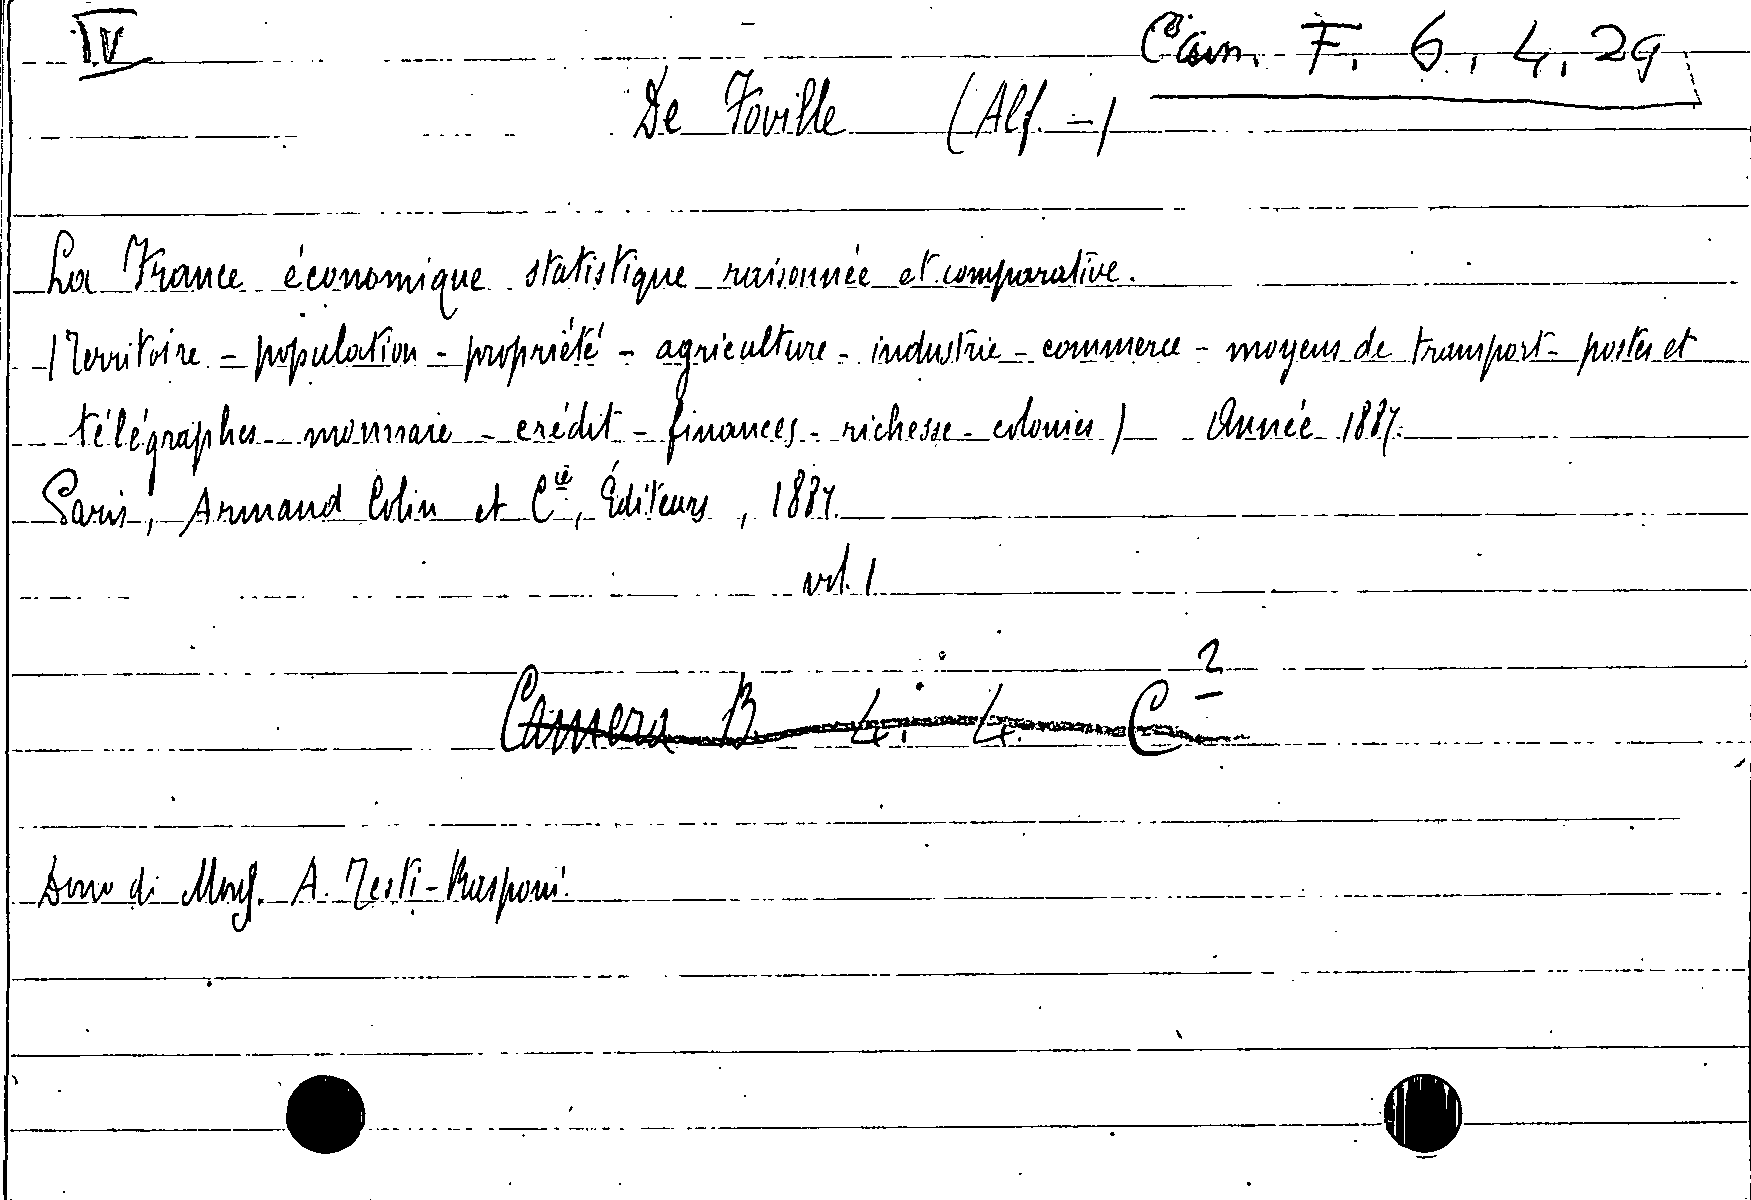 IV
Cam. F. 6. 4. 29
De Foville (Alf. -)
La France économique statistique raisonnée et comparative.
(Territoire - population - propriété - agriculture - industrie - commerce - moyens de transport - postes et
télégraphes - monnaie - crédit - finances - richesse - colonies) Année 1887.
Paris, Armand Colin et Cie, Éditeurs, 1887.
vol. 1
Camera B. 4. 4. C 2
Dono di Mons. A. Testi-Rasponi.